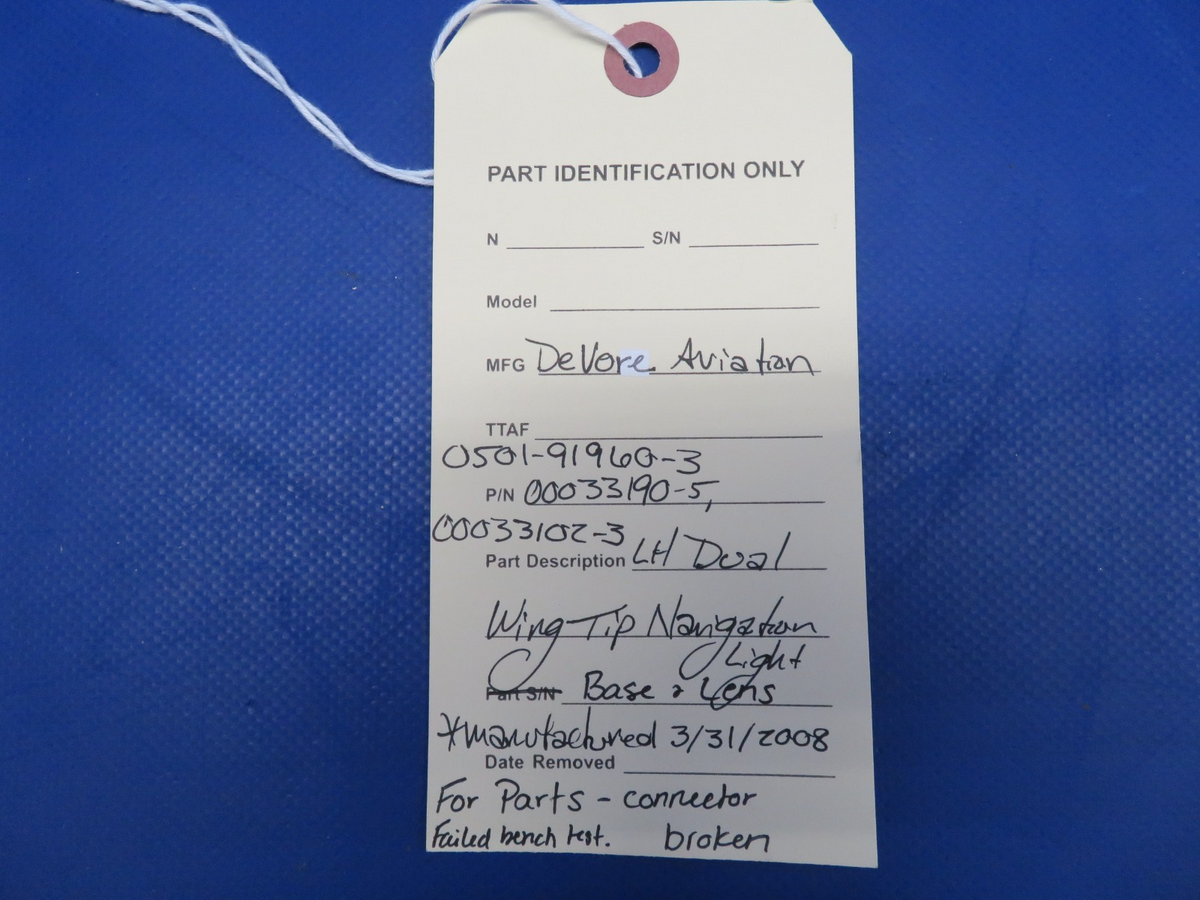 PART IDENTIFICATION ONLY
N S/N
Model
MFG DeVore Aviation
TTAF
0501-91960-3
P/N 00033190-5,
00033102-3
Part Description LH Dual
Wing Tip Navigation
Light
Part S/N Base & Lens
*manufactured 3/31/2008
Date Removed
For Parts - connector
Failed bench test. broken